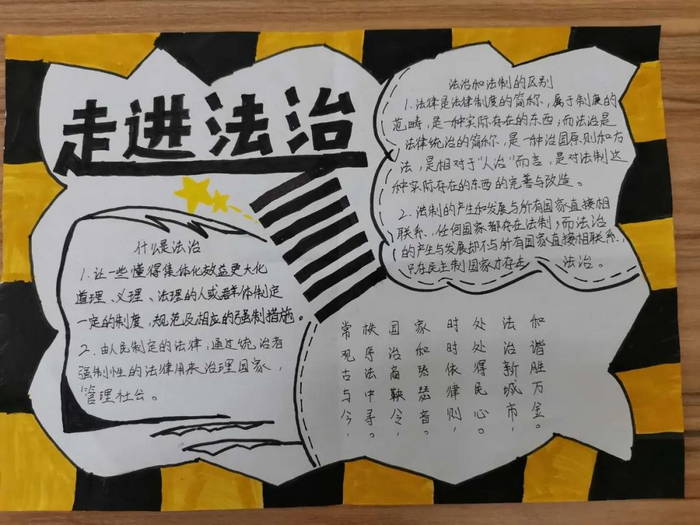 走进法治
什么是法治
1.让一些懂得集体化效益更大化
道理、义理、法理的人或群体制定
一定的制度,规范及相应的强制措施。
2.由人民制定的法律,通过统治者
强制性的法律用来治理国家,
管理社会。
法治和法制的区别
1.法律是法律制度的简称,属于制度的
范畴,是一种实际存在的东西,而法治是
法律统治的简称,是一种治国原则和方
法,是相对于“人治”而言,是对法制这
种实际存在的东西的完善与改造。
2.法制的产生和发展与所有国家直接相
联系,任何国家都存在法制,而法治
的产生与发展却不与所有国家直接相联系,
只在民主制国家存在法治。
常观古与今,
秩序法中寻。
国治商鞅令,
家和瑟瑟音。
时时依律则,
处处得民心。
法治新城市,
和谐胜万金。